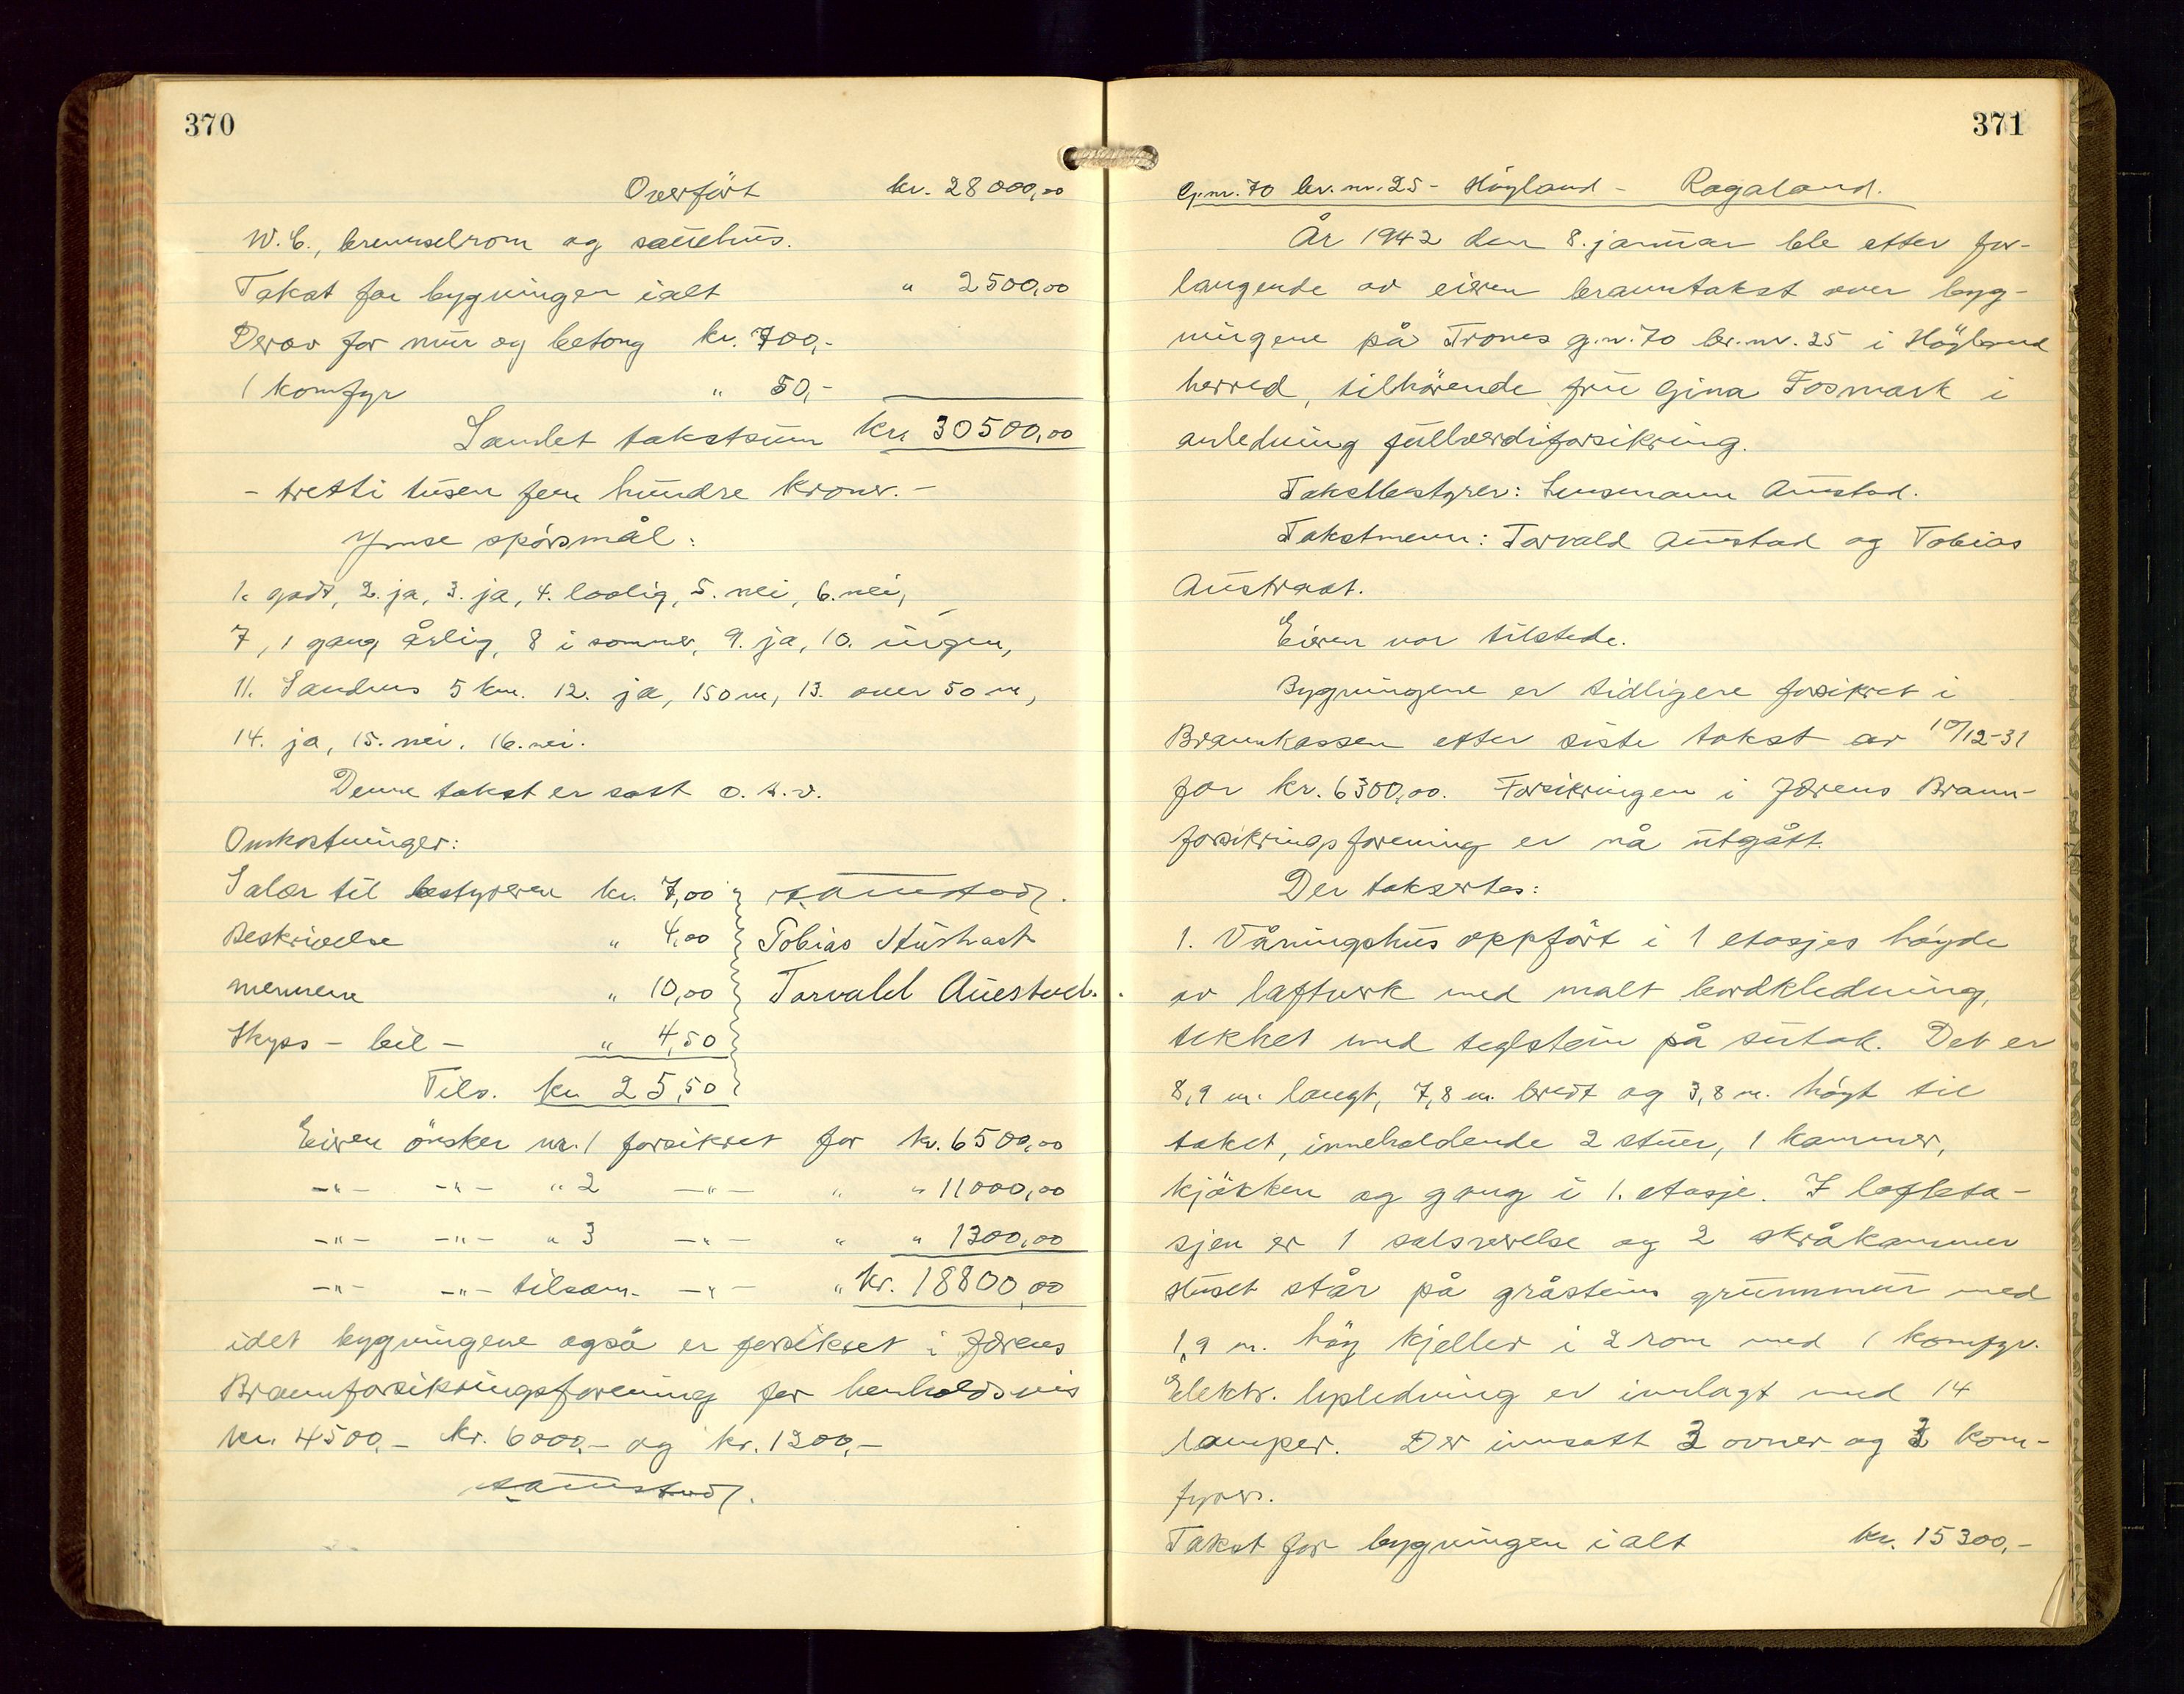 370
Overfört kr. 28 000,00
W.C., brenselrom og sauehus.
Takst for bygningen ialt " 2500,00
Derav for mur og betong kr. 700,-
1 komfyr " 50,-
Samlet takstsum kr. 30500,00
- tretti tusen fem hundre kroner. -
Ymse spörsmål:
1. godt, 2. ja, 3. ja, 4. lovlig, 5. nei, 6. nei,
7, 1 gang årlig, 8 i sommer, 9. ja, 10. ingen,
11. Sandnes 5 km. 12. ja, 150 m, 13. over 50 m,
14. ja, 15. nei. 16. nei.
Denne takst er satt o.s.v.
Omkostninger:
Salær til bestyreren kr. 7,00
Beskrivelse " 4,00 Tobias
mennene " 10,00 Torvald Auestad.
Skyss - bil - " 4,50
Tils. kr. 25,50
Eieren önsker nr. 1 forsikret for kr. 6500,00
-"- -"- " 2 -"- " " 11000,00
-"- -"- " 3 -"- " " 1300,00
-"- -"- tilsam. -"- " kr. 18800,00
idet bygningene også er forsikret i Jærens
Brannforsikringsforening for henholdsvis
kr. 4500,- kr. 6000,- og kr. 1200,-
371
G.nr. 70 br.nr. 25 - Höyland - Rogaland.
År 1942 den 8. januar ble etter for-
langende av eieren branntakst over byg-
ningene på Trones g.nr. 70 br.nr. 25 i Höyland
herred, tilhörende fru Gina Fosmark i
anledning fullverdiforsikring.
Takstbestyrer: Lensmann Auestad.
Takstmenn: Torvald Auestad og Tobias
Austraat.
Eieren var tilstede.
Bygningene er tidligere forsikret i
Brannkassen etter siste takst av 10/12-31
for kr. 6300,00. Forsikringen i Jærens Brann-
forsikringsforening er nå utgått.
Der takseres:
1. Våningshus oppfört i 1 etasjes höyde
av laftverk med malt bordkledning,
tekket med teglstein på sutak. Det er
8,9 m. langt, 7,8 m. bredt og 3,8 m. högt til
taket, inneholdende 2 stuer, 1 kammer,
kjökken og gang i 1. etasje. I lofteta-
sjen er 1 salsverelse og 2 skråkammer
Huset står på gråsteins grunnmur med
1,9 m. höy kjeller i 2 rom med 1 komfyr.
Elektr. lysledning er innlagt med 14
lamper. Der innsatt 3 ovner og 2 kom-
fyrer.
Takst for bygningen ialt kr. 15300,-